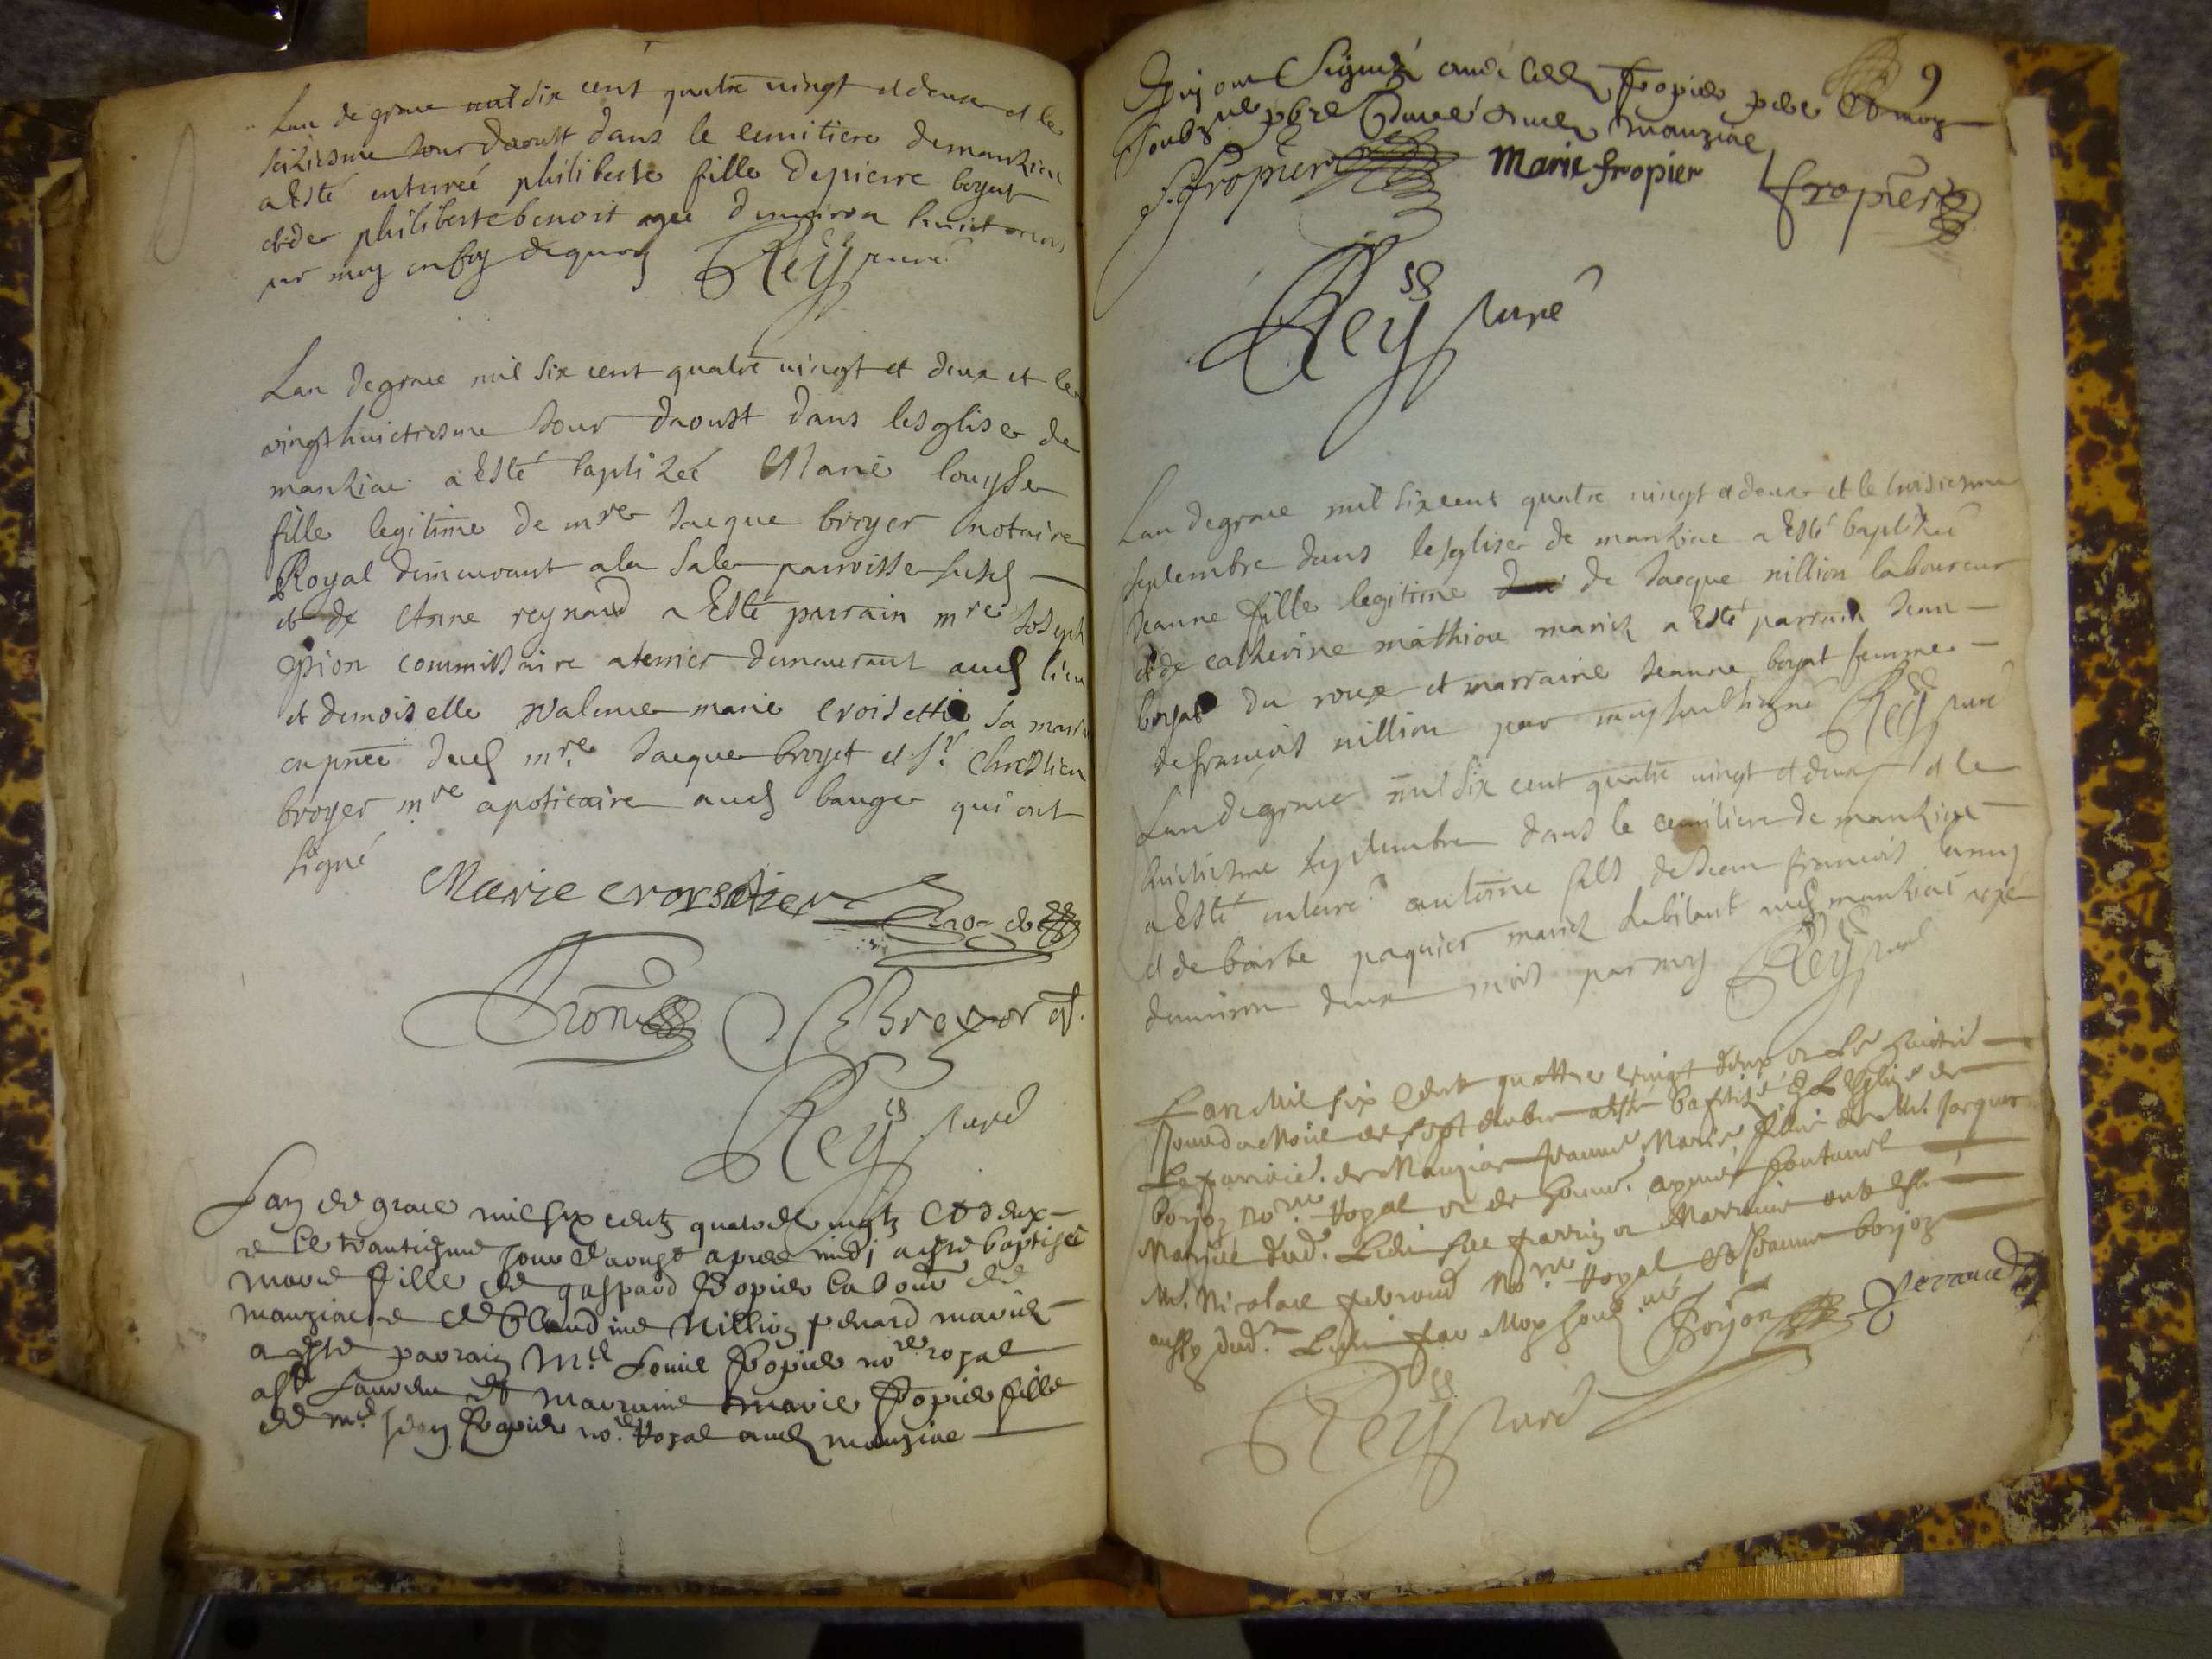 Lan de grace mil six cent quatre vingt et deux et le
seiziesme Jour daoust dans le cemitiere demanziau
a Esté enterreé philiberte fille depierre boyat
et de philiberte benoit agee denuiron huict mois
par moy en foy dequoy Rey curé
Lan de grace mil six cent quatre vingt et deux et le
vingt huictiesme Jour daoust dans lesglise de
manziac a Esté baptizeé Marie louysse
fille legitime de mre Jacque broyer notaire
Royal demeurant a la Sale parroisse susd
et de Anne reynaud a Esté parrain mre Joseph
commissaire a terrier demeurant aud lieu
et demoiselle valence marie croisettie sa
en pnce dud mre Jacque broyer et Sr. Chrestien
broyer mre apoticaire aud bauge qui ont
signé
Marie croysetier
Rey curé
Lan de grace mil six centz quatre vingtz et deux
et le trantiesme Jour daoust apres midi a esté baptisée
marie fille de gaspard fropier labour de
manziac et de Claudine Nillion mariez
a esté parrain Me Louis fropier nore royal
a St Laurens et marraine marie fropier fille
de me Jean fropier nore Royal aud manziac
9
Qui ont Signez auec led fropier pere Et moy
soubzne pbre Curé dud manziac
J. fropier Marie fropier fropier
Rey curé
Lan de grace mil six cent quatre vingt et deux et le troisiesme
septembre dans lesglise de manziac a Esté baptizeé
Jeanne fille legitime de Jacque nillion laboureur
et de catherine mathieu mariez a Esté parrain Jean
boyat du roux et marraine Jeanne boyat femme
de francois nillion par moy soussigné Rey curé
Lan de grace mil six cent quatre vingt et deux et le
huictiesme septembre dans le cemitiere de manziac
a Esté enterré antoine fils de Jean francois
et de barbe paquier mariez habitant aud manziac agé
denuiron deux mois par moy Rey curé
Lan Mil six Cent quattre vingt deux et le huictie
Jour du Mois de septembre a esté baptisé en Lesglise de
La parroisse de Manziac Jeanne Marie fillie de Me. Jacques
borjon nore. Royal et de honne. fontanel
Mariés dud. Lieu see parrin et Marraine ont esté
Me. Nicolas ferroud Nore. Royal et Jeanne borjon
aussy dud. Lieu par Moy soub né Borjon Ferroud
Rey curé